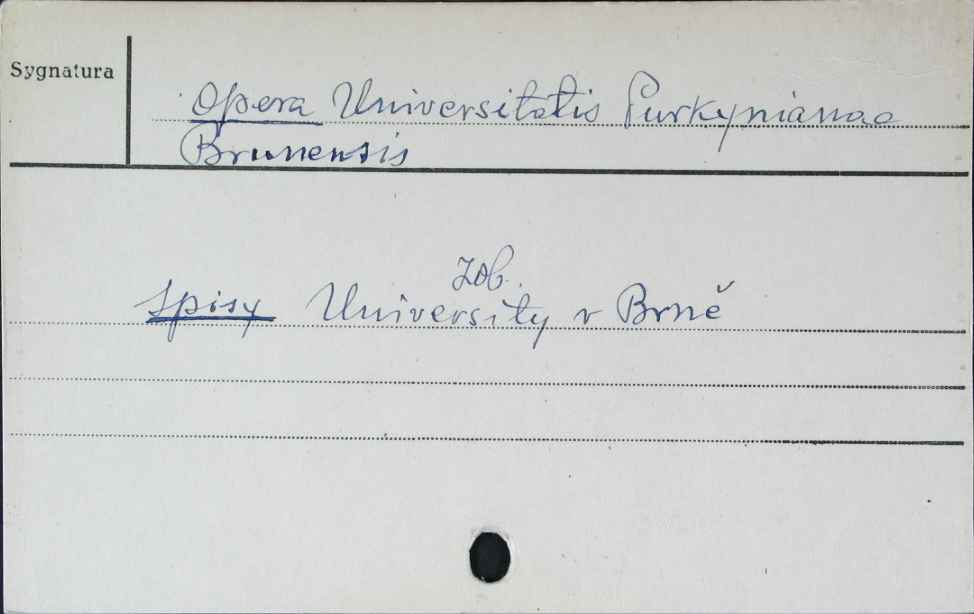 Sygnatura
Opera Universitatis Purkynianae
Brunensis
zob.
Spisy University v Brně